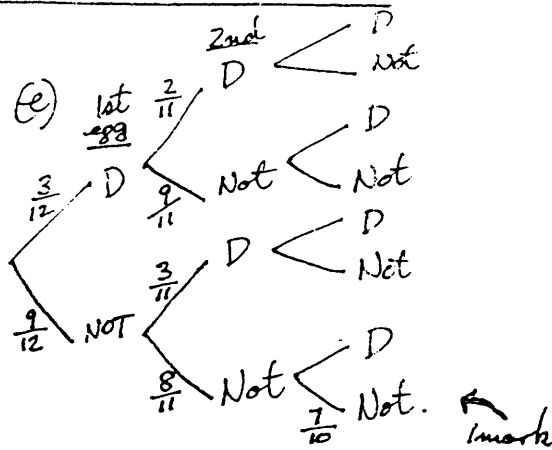 (e)
1st
egg
2nd
3/12 D
2/11 D
D
Not
9/11 Not
D
Not
9/12 NOT
3/11 D
D
Not
8/11 Not
D
7/10 Not.
1 mark